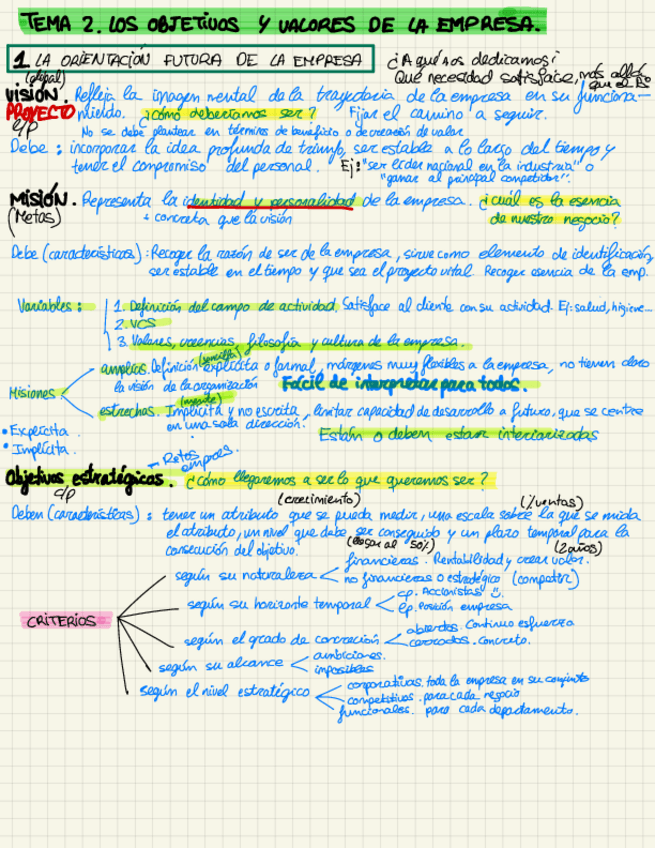 TEMA 2. LOS OBJETIVOS Y VALORES DE LA EMPRESA.
1. LA ORIENTACIÓN FUTURA DE LA EMPRESA
¿A qué nos dedicamos?
Qué necesidad satisface, más allá que el Bº
(global)
VISIÓN. Refleja la imagen mental de la trayectoria de la empresa en su funciona-
PROYECTO miento. ¿cómo deberíamos ser? Fijar el camino a seguir.
e/p No se debe plantear en términos de beneficio o de creación de valor
Debe: incorporar la idea profunda de triunfo, ser estable a lo largo del tiempo y
tener el compromiso del personal. Ej: "ser líder nacional en la industria" o
"ganar al principal competidor".
MISIÓN. Representa la identidad y personalidad de la empresa. ¿cuál es la esencia
(Metas) + concreta que la visión de nuestro negocio?
Debe (características): Recoger la razón de ser de la empresa, sirve como elemento de identificación,
ser estable en el tiempo y que sea el proyecto vital. Recoger esencia de la emp.
Variables: 1. Definición del campo de actividad. Satisface al cliente con su actividad. Ej: salud, higiene...
2. VCS
3. Valores, creencias, filosofía y cultura de la empresa.
(sencilla)
Misiones amplias. Definición explícita o formal, márgenes muy flexibles a la empresa, no tienen claro
la visión de la organización Fácil de interpretar para todos.
estrechas. Implícita y no escrita, limitar capacidad de desarrollo a futuro, que se centre
en una sola dirección.
• Explícita.
• Implícita.
Están o deben estar interiorizadas
→ Retos empres.
Objetivos estratégicos. ¿cómo llegaremos a ser lo que queremos ser?
c/p (crecimiento) (% ventas)
Deben (características): tener un atributo que se pueda medir, una escala sobre la que se mida
el atributo, un nivel que debe ser conseguido y un plazo temporal para la
consecución del objetivo. (llegar al 50%) (2 años)
CRITERIOS
según su naturaleza financieros. Rentabilidad y crear valor.
no financieros o estratégico (competir)
según su horizonte temporal cp. Accionistas
lp. Posición empresa
según el grado de concreción abiertos Continuo esfuerzo
cerrados. Concreto.
según su alcance ambiciones
imposibles
según el nivel estratégico corporativos. toda la empresa en su conjunto
competitivos. para cada negocio
funcionales. para cada departamento.